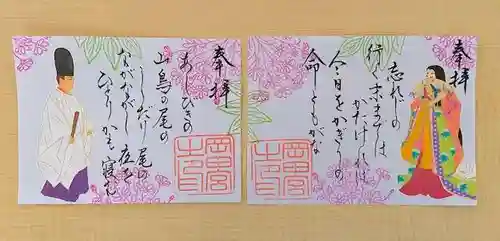 奉拝
忘れじの
行く末までは
かたければ
今日をかぎりの
命ともがな
奉拝
あしびきの
山鳥の尾の
しだり尾の
ながながし夜を
ひとりかも寝む